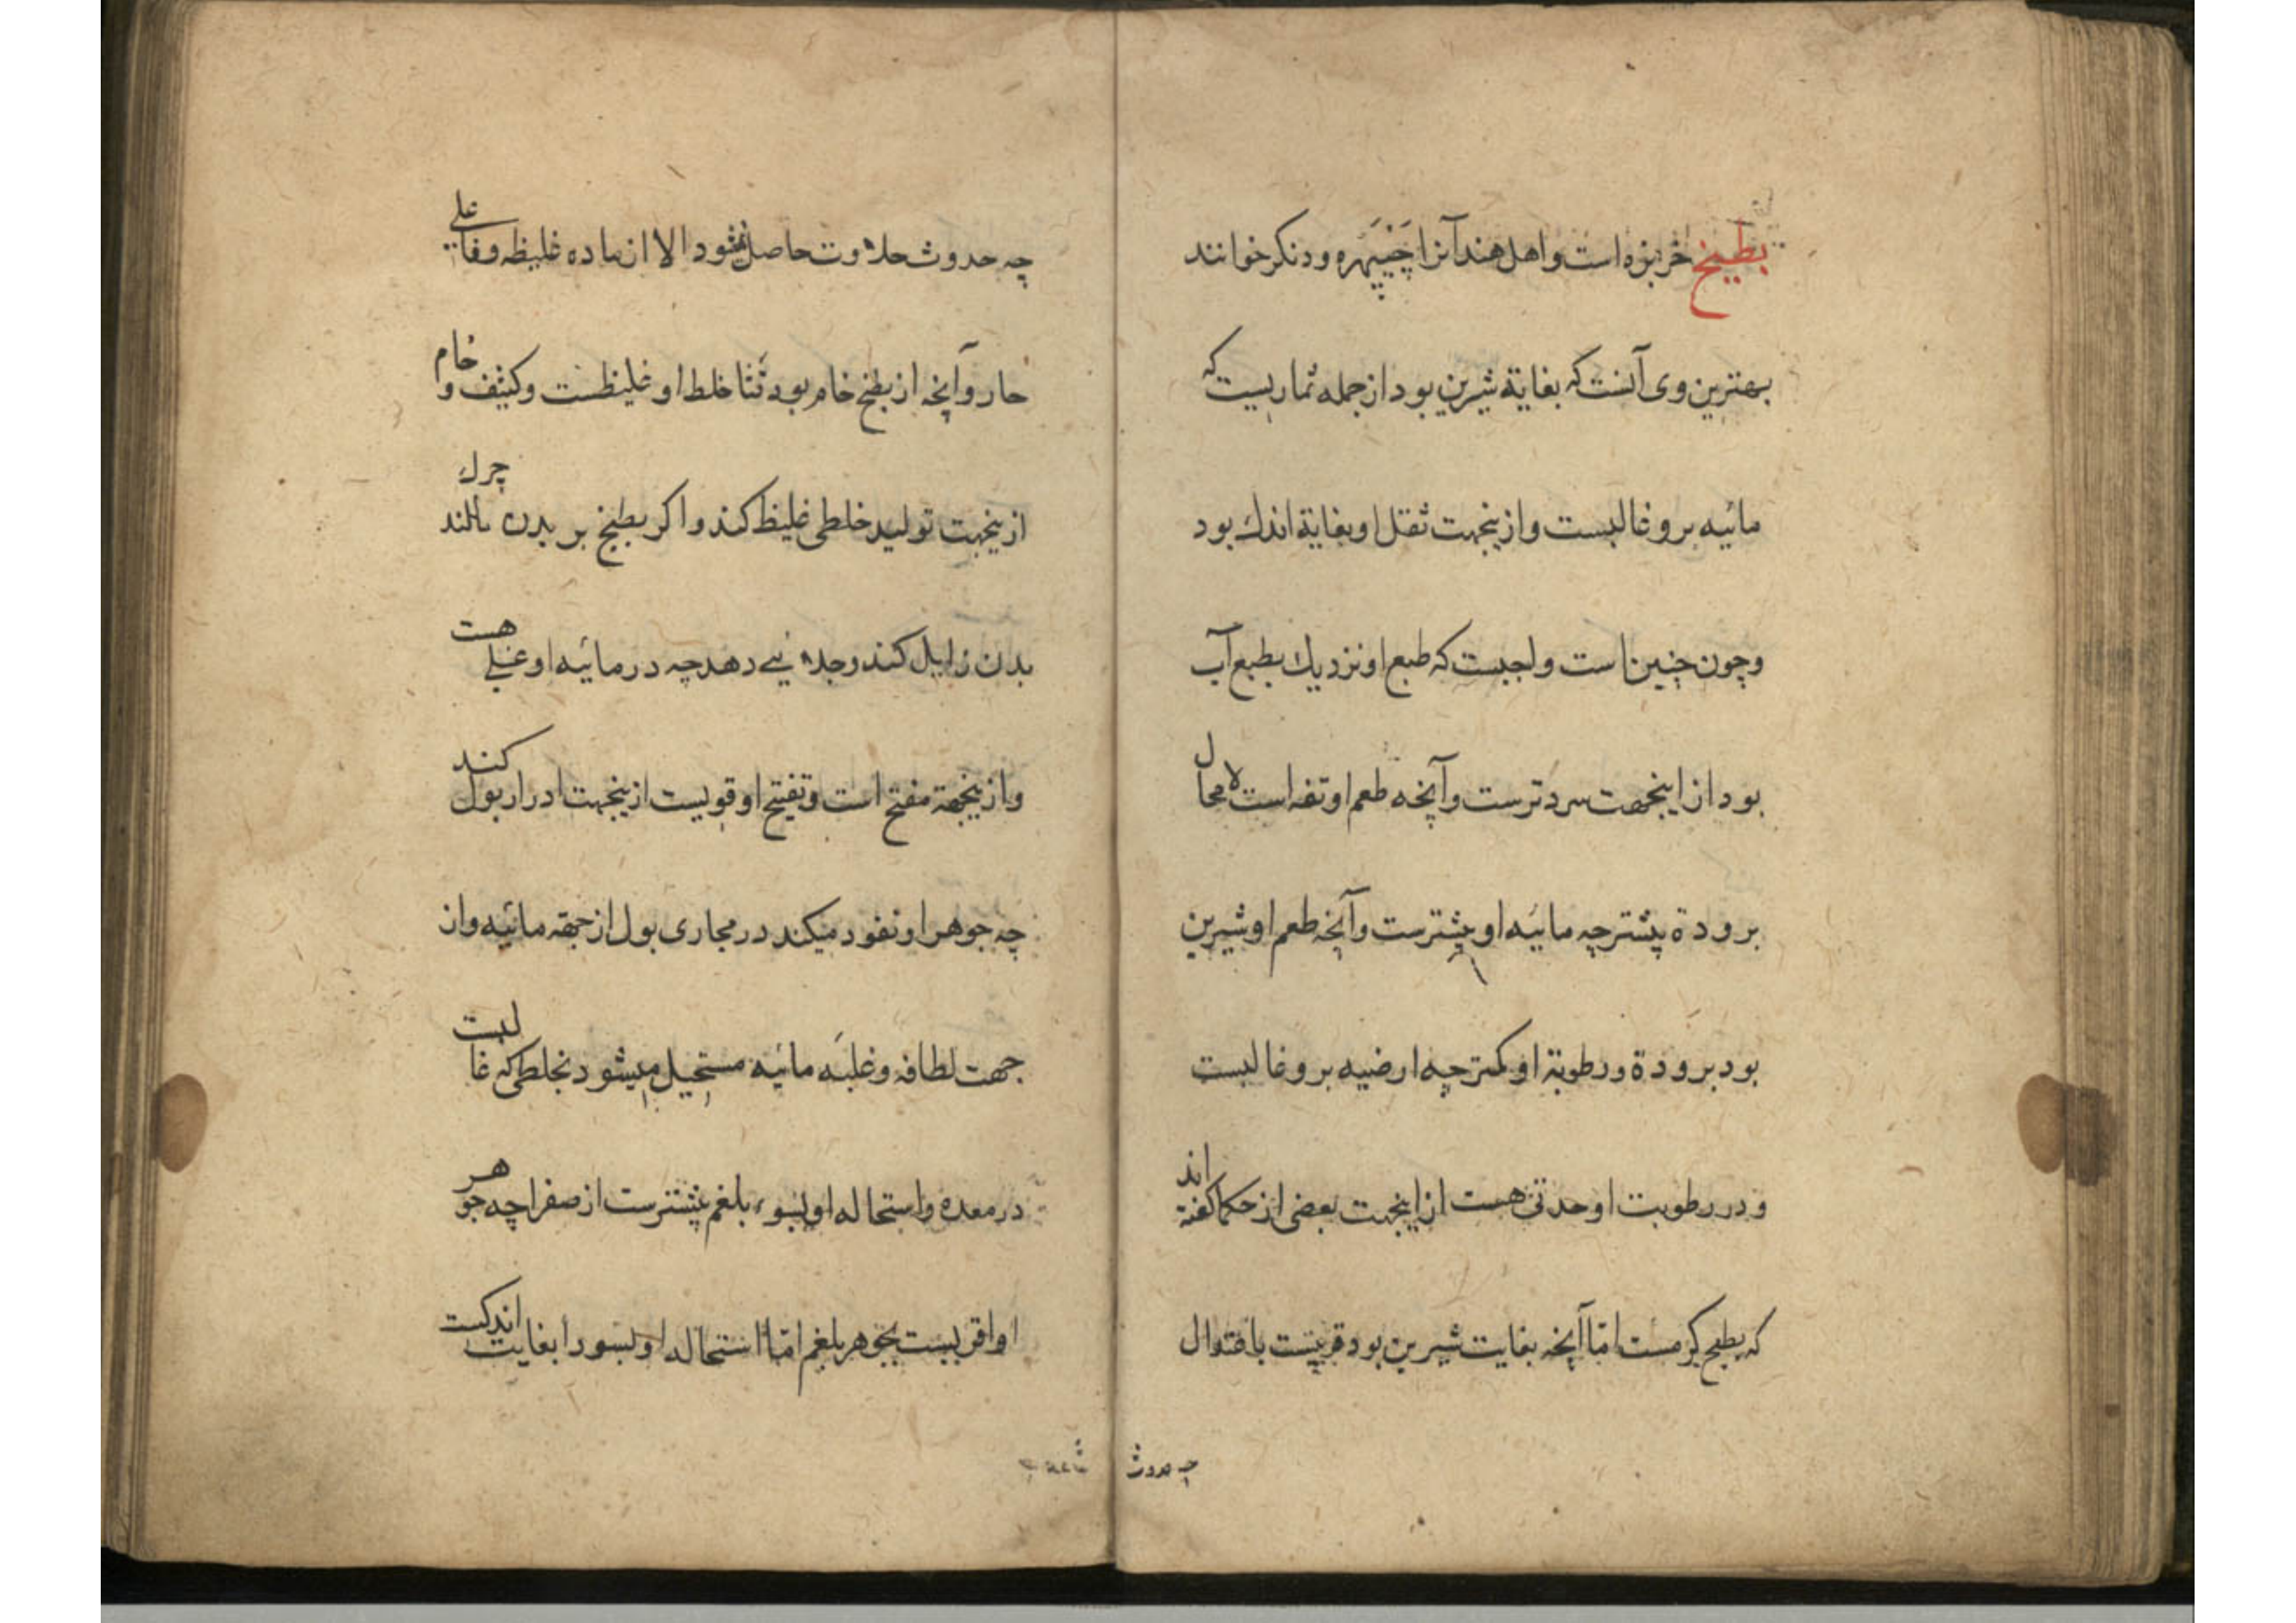 بطیخ خربزه است و اهل هند آنرا چَنْپَهره و دنکر خوانند
بهترین وی آنست که بغایة شیرین بود از جمله ثماریست که
مائیه برو غالبست و ازینجهت ثقل او بغایة اندك بود
و چون چنین است واجبست که طبع او نزدیك بطبع آب
بود از اینجهت سردترست و آنچه طعم او تفه است لامحال
برودة پیشتر چه مائیه او پیشترست و آنچه طعم او شیرین
بود برودة و رطوبة او کمتر چه ارضیه برو غالبست
و در رطوبت او حدتی هست از اینجهت بعضی از حکما کفته اند
که بطیخ کرمست امّا آنچه بغایت شیرین بود قریبست با
چه حدوث
چه حدوث حلاوت حاصل نشود الا از ماده غلیظه و
حار و آنچه از بطیخ خام بود قثا خلط او غلیظست و کثیف و خام
ازینجهت تولید خلطی غلیظ کند و اکر بطیخ بر بدن مالند چرك
بدن زایل کند و جلا دهد چه در مائیه او هست
و ازینجهة مفتح است و تفتیح او قویست ازینجهت ادرار بول کند
چه جوهر او نفود میکند در مجاری بول از جهة مائیه و از
جهت لطافه و غلبه مائیه مستحیل میشود بخلطی که غالبست
در معده و استحاله او بسوء بلغم پیشترست از صفرا چه جوهر
او اقربست بجوهر بلغم امّا استحاله او بسودا بغایت اندکست